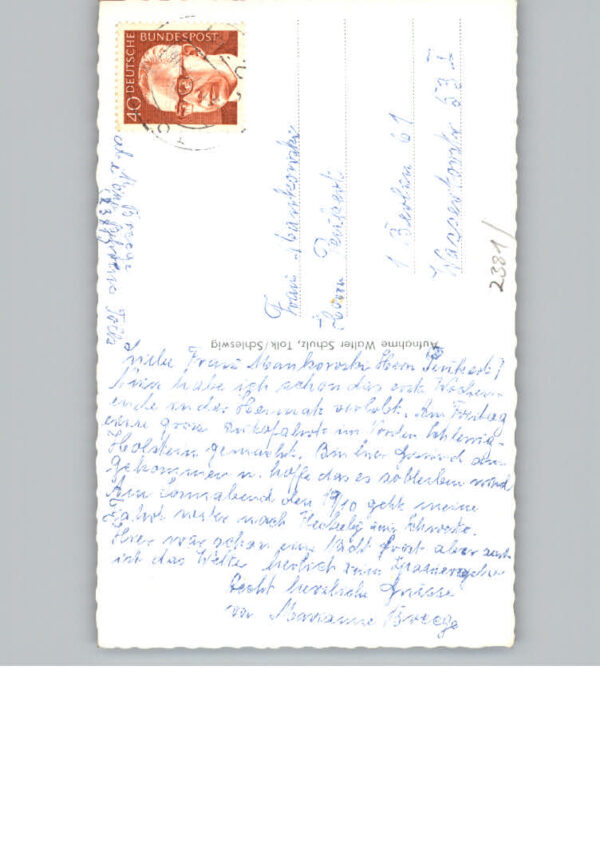 Liebe Frau Mankowski Herr Teufert!
Nun habe ich schon das erste Wochen-
ende in der Heimat verlebt. Am Freitag
eine gross Autofahrt im Norden Schleswig-
Holstein gemacht. Bin hier gesund an-
gekommen u. hoffe das es so bleiben wird
Am Sonnabend den 19/10 geht meine
Fahrt weiter nach zur
Hier war schon eine Nacht Frost aber
ist das Wetter herlich zum
Recht herzliche Grüsse
von Marianne Breege
Aufnahme Walter Schulz, Tolk/Schleswig
Frau Mankowski
Herrn
1 Berlin 61
53 I
abs. Breege
Tolk
DEUTSCHE BUNDESPOST
40
2381/